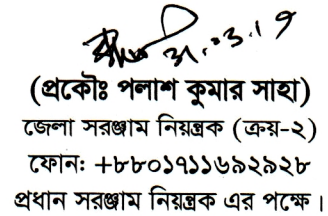 ৩১.০৩.১৭
(প্রকৌঃ পলাশ কুমার সাহা)
জেলা সরঞ্জাম নিয়ন্ত্রক (ক্রয়-২)
ফোন: +৮৮০১৭১১৬৯২৯২৮
প্রধান সরঞ্জাম নিয়ন্ত্রক এর পক্ষে।